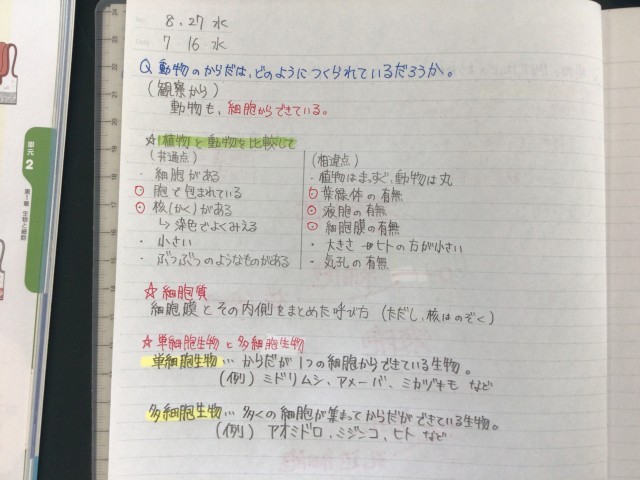 8.27 水
7 16 水
Q 動物のからだは、どのようにつくられているだろうか。
(観察から)
動物も、細胞からできている。
☆植物と動物を比較して
(共通点)
・細胞がある
胞で包まれている
核(かく)がある
↳染色でよくみえる
・小さい
・ぶつぶつのようなものがある
(相違点)
・植物はまっすぐ、動物は丸
葉緑体の有無
液胞の有無
細胞膜の有無
・大きさ →ヒトの方が小さい
・気孔の有無
☆細胞質
細胞膜とその内側をまとめた呼び方(ただし、核はのぞく)
☆単細胞生物と多細胞生物
単細胞生物…からだが1つの細胞からできている生物。
(例)ミドリムシ、アメーバ、ミカヅキモ など
多細胞生物…多くの細胞が集まってからだができている生物。
(例)アオミドロ、ミジンコ、ヒト など
単元
2
第1章 生物と細胞